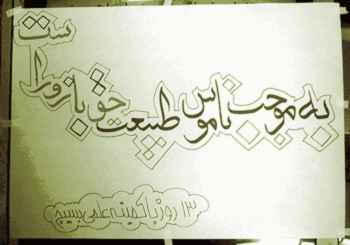 به موجب ناموس طبیعت حق با زورا ست
۱۳ روز با کمینه علمی بسیج